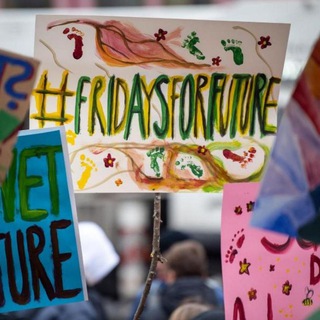 #FRIDAYSFORFUTURE
NET
TURE